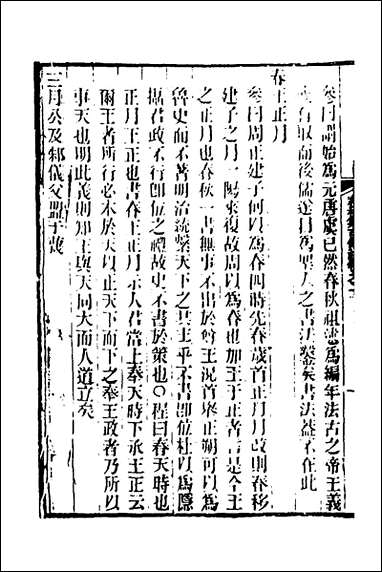 參曰謂始爲元唐虞已然春秋祖述爲編年法古之帝王義
有取而後儒遂目爲聖人之書法鑿矣書法蓋不在此
春王正月
參曰周正建子何以爲春四時先春歲首正月月改則春移
建子之月一陽來復故周以爲春也加王于正者言是今王
之正月也春秋一書無事不出於尊王況首舉正朔可以爲
魯史而不著明治統繫天下之共主乎不書即位杜以爲隱
攝君政不行即位之禮故史不書於策也○程曰春天時也
正月王正也書春王正月示人君當上奉天時下承王正云
爾王者所行必本於天以正天下而下之奉王政者乃所以
事天也明此義則知王與天同大而人道立矣
三月公及邾儀父盟于蔑